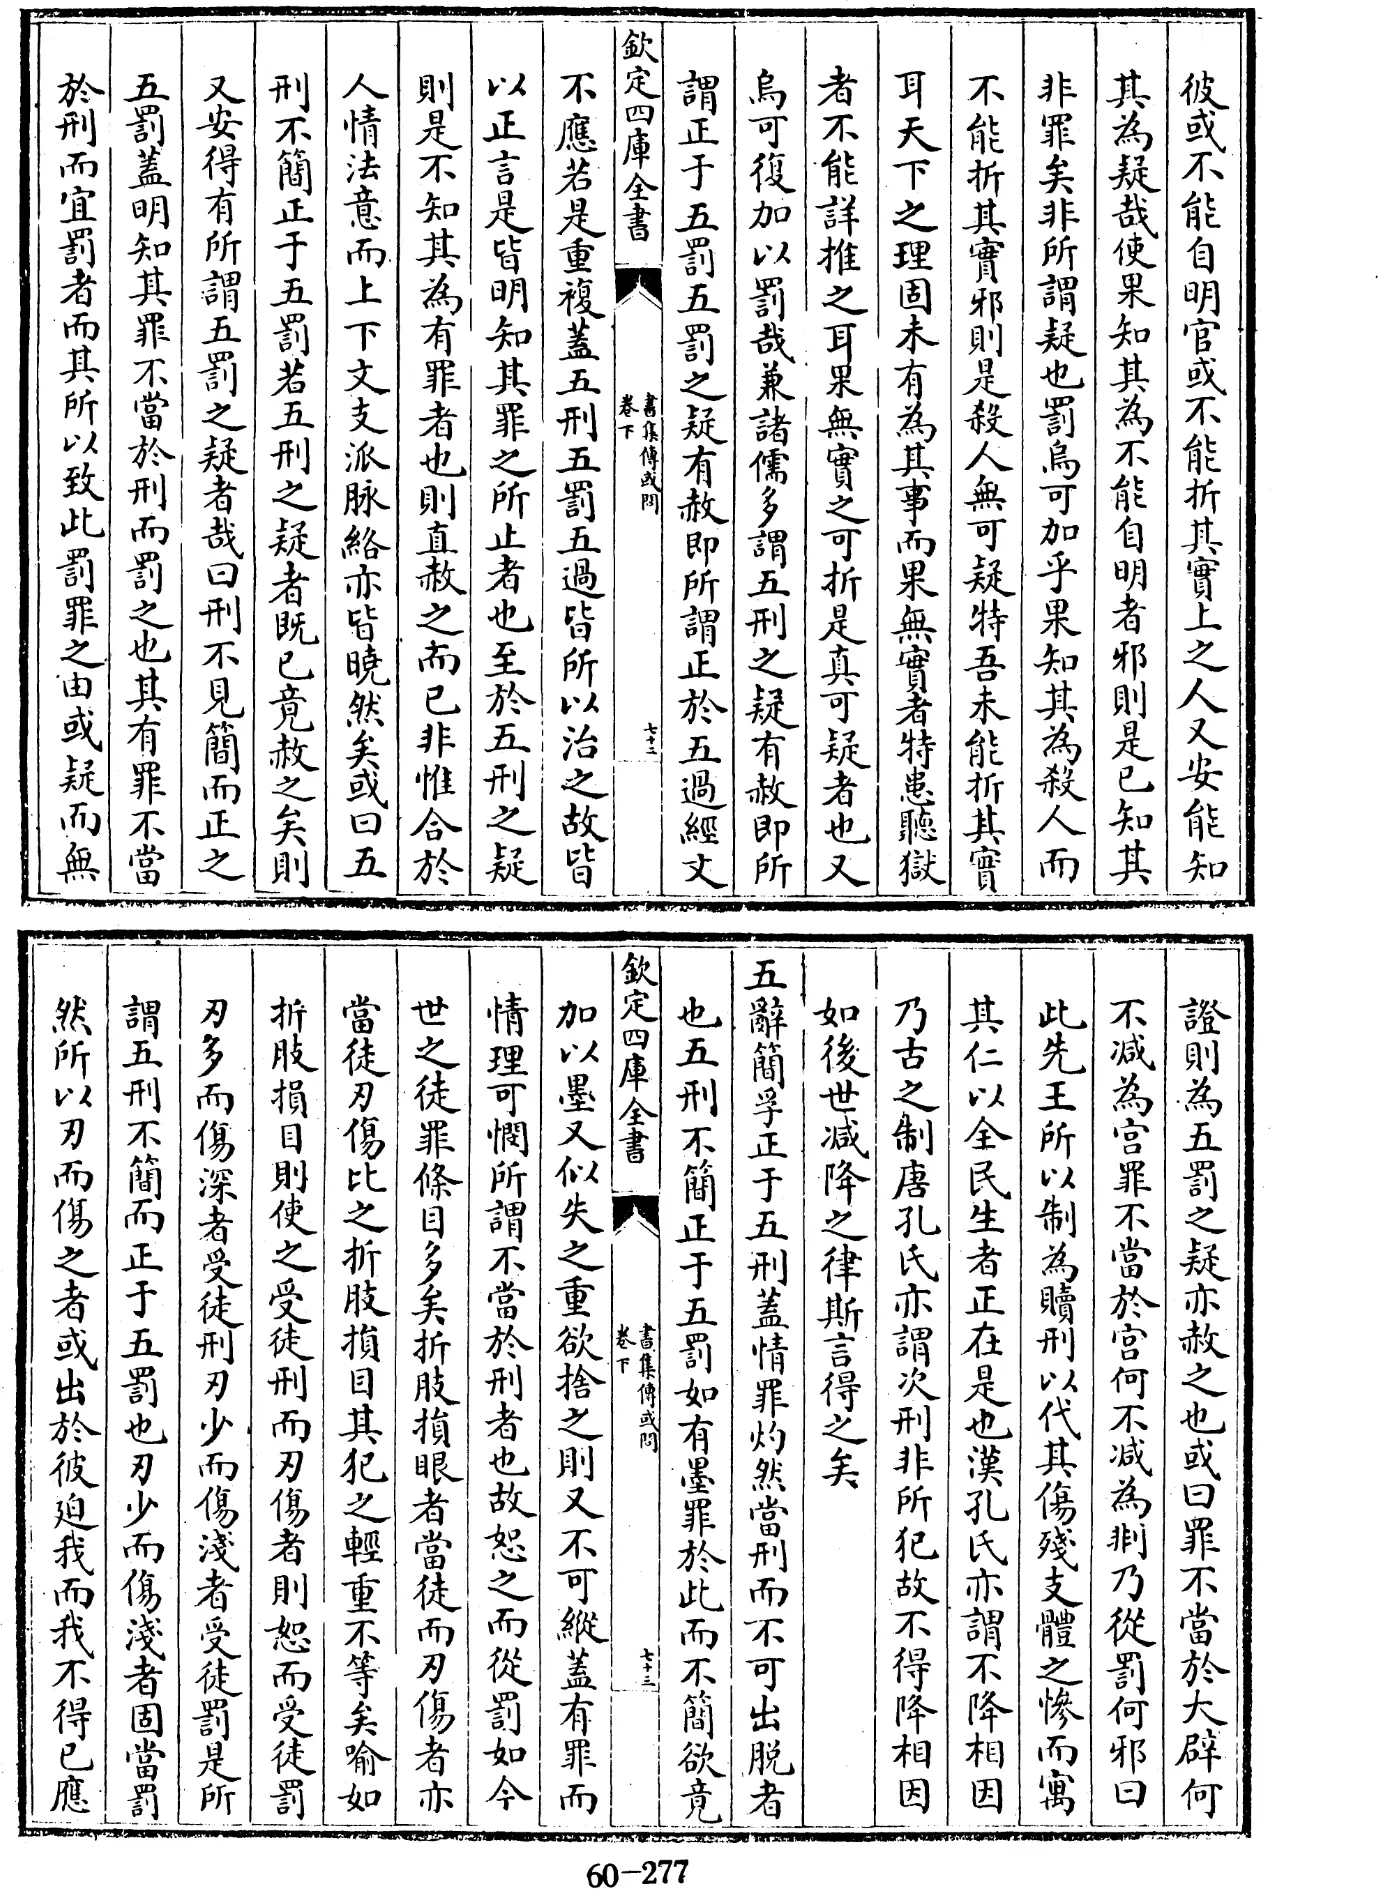 彼或不能自明官或不能折其實上之人又安能知
其為疑哉使果知其為不能自明者邪則是已知其
非罪矣非所謂疑也罰烏可加乎果知其為殺人而
不能折其實邪則是殺人無可疑特吾未能折其實
耳天下之理固未有為其事而果無實者特患聽獄
者不能詳推之耳果無實之可折是真可疑者也又
烏可復加以罰哉兼諸儒多謂五刑之疑有赦即所
謂正于五罰五罰之疑有赦即所謂正於五過經文
欽定四庫全書
書集傳或問
卷下
七十二
不應若是重複蓋五刑五罰五過皆所以治之故皆
以正言是皆明知其罪之所止者也至於五刑之疑
則是不知其為有罪者也則直赦之而已非惟合於
人情法意而上下文支派脉絡亦皆曉然矣或曰五
刑不簡正于五罰若五刑之疑者既已竟赦之矣則
又安得有所謂五罰之疑者哉曰刑不見簡而正之
五罰蓋明知其罪不當於刑而罰之也其有罪不當
於刑而宜罰者而其所以致此罰罪之由或疑而無
證則為五罰之疑亦赦之也或曰罪不當於大辟何
不減為宫罪不當於宫何不減為剕乃從罰何邪曰
此先王所以制為贖刑以代其傷殘支體之慘而寓
其仁以全民生者正在是也漢孔氏亦謂不降相因
乃古之制唐孔氏亦謂次刑非所犯故不得降相因
如後世減降之律斯言得之矣
五辭簡孚正于五刑蓋情罪灼然當刑而不可出脱者
也五刑不簡正于五罰如有墨罪於此而不簡欲竟
欽定四庫全書
書集傳或問
卷下
七十三
加以墨又似失之重欲捨之則又不可縱蓋有罪而
情理可憫所謂不當於刑者也故恕之而從罰如今
世之徒罪條目多矣折肢損眼者當徒而刃傷者亦
當徒刃傷比之折肢損目其犯之輕重不等矣喻如
折肢損目則使之受徒刑而刃傷者則恕而受徒罰
刃多而傷深者受徒刑刃少而傷淺者受徒罰是所
謂五刑不簡而正于五罰也刃少而傷淺者固當罰
然所以刃而傷之者或出於彼廹我而我不得已應
60-277